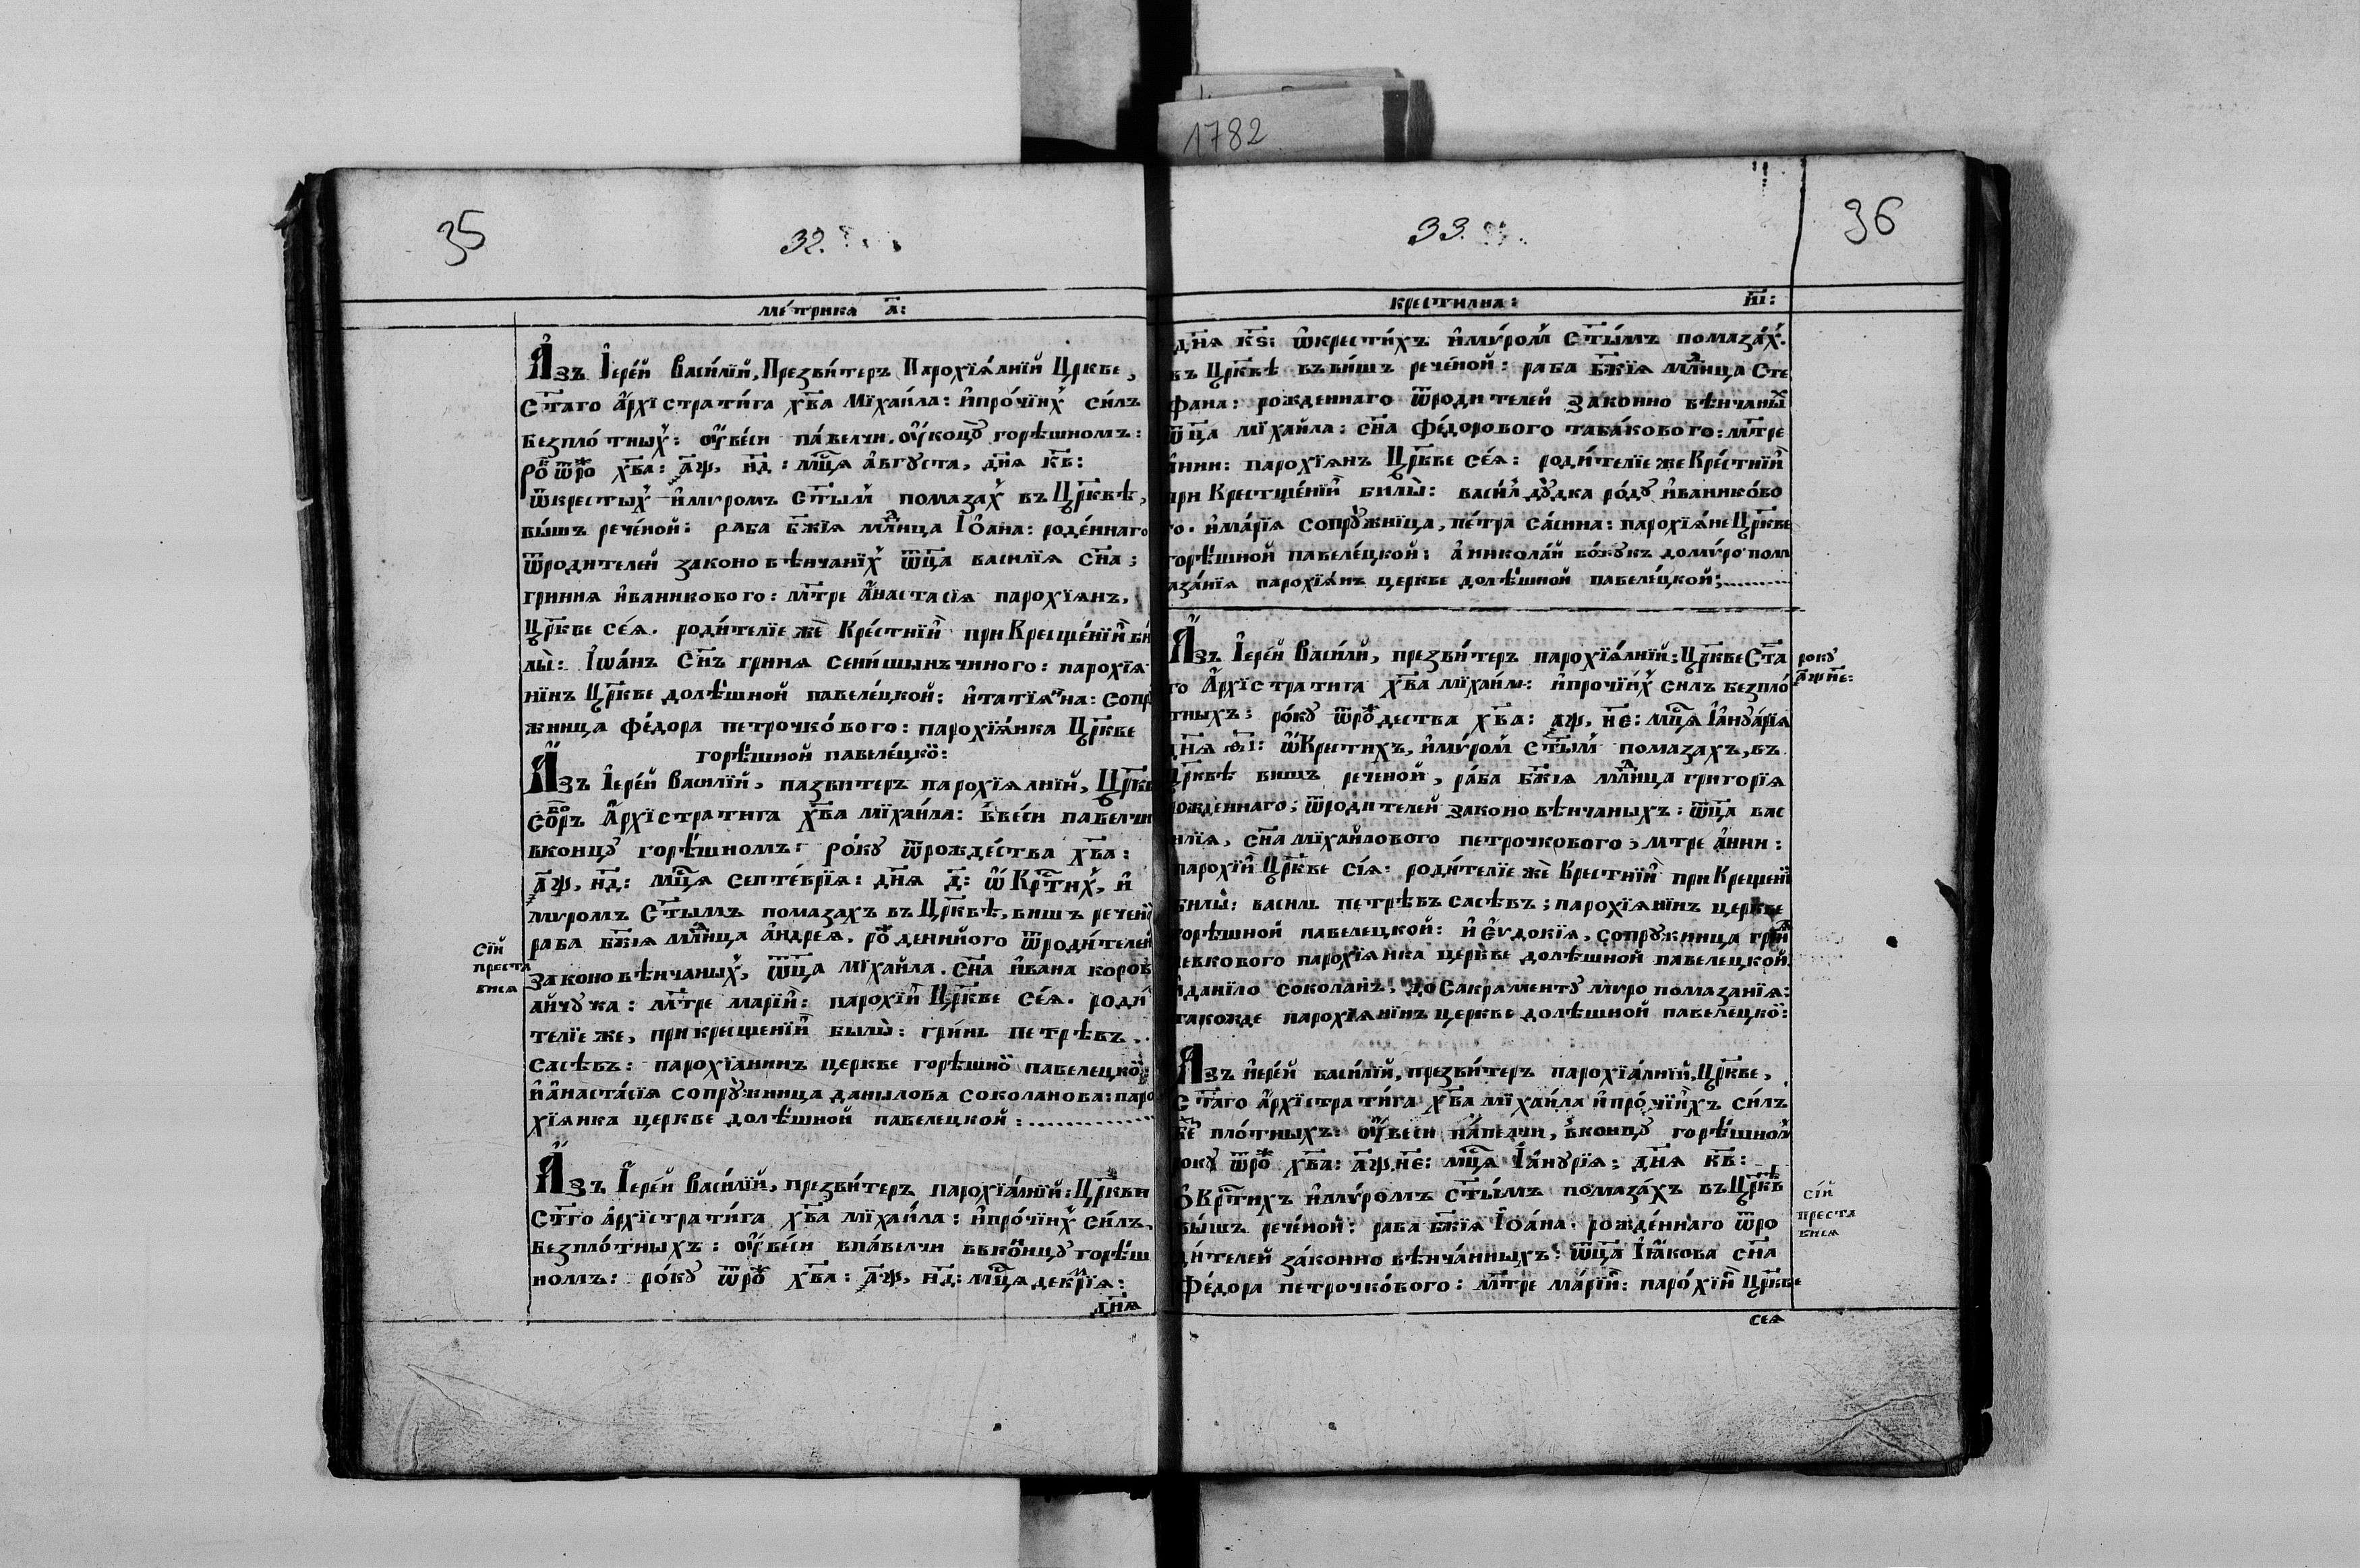 1782
35
32.
Ме́трика а҃:
А҆зъ І҆ере́й Васи́лїй, Презви́теръ Парохїа́лнїй Цр҃кве,
Ст҃аго а҆рхїстрати́га хв҃а Мїхаи́ла: и҆про́чїих̾ си́лъ
Безпло́тных̾: оу҆ве́си па́велчи. оу҆коцꙋ̀ горѣ́шномъ:
Рок҃ ѿрож҃ хв҃а: а҃ѱ, н҃д: мц҃ѧ а҆́вгꙋста, дн҃ѧ к҃в:
ѿкрестых̾ и҆мѵромъ ст҃ым̾ помазах̾ въ Цр҃квѣ,
вы́шъ рече́ной: раба бж҃їѧ мл҃нца І҆оана: роде́ннаго
ѿродителей законо вѣнчанїх̾ ѿц҃а василїѧ сн҃а;
гринѧ и҆ваникового: мт҃ре а҆настасїѧ парохїѧнъ,
Цр҃кве се́ѧ. роди́телїе жѐ Кре́стнїи̂ при Креще́нїи̂ би
лы̀: І҆ѡа́нъ сн҃ъ гринѧ сени́шынъчиного: парохїѧ
нїнъ Цр҃кве долѣ́шной павеле́цкой: и҆татїѧ́на: сопрꙋ
жница фе́дора петрочко́вого: парохїѧ́нка Цр҃кве
горѣ́шной павеле́цкой:
А҆зъ І҆ере́й Василїй, пазвитеръ парохїѧлнїй, Цр҃кв
собр҃ъ а҆рхїстратига хв҃а мїхаи́ла: в̾ве́си павелчи
вконцꙋ горѣ́шномъ: ро́кꙋ ѿрожде́ства хв҃а:
а҃ѱ, н҃д: мц҃ѧ септеврїѧ: дн҃ѧ д҃: ѡ҆ Крт҃их̾, и҆
мѵромъ ст҃ымъ помазахъ въ Цр҃квѣ, вишъ речен
раба бж҃їѧ мл҃нца а҆ндреѧ. рож҃деннйого ѿроди́телей
законо вѣнчаных̾, ѿц҃а мїхаи́ла. сн҃а и҆вана коров
айчꙋка: мт҃ре марїи̂: парохїи̂ Цр҃кве се́ѧ. роди́
телїе же, при крещенїи̂ былы̀: гри́нь петрѣвъ.
сасѣвъ: парохїанинъ церкве горѣшной павелецкой:
и҆а҆наста́сїѧ сопрꙋ́жница данылова соколанова: паро
хїѧнка церкве долѣ́шной павелецкой:
Сїй
преста
висѧ
А҆зъ І҆ере́й Васи́лїй, презви́теръ парохїа́лнїй: Цр҃кви
Ст҃го а҆рхїстрати́га хв҃а мїхаи́ла: и҆про́чїих̾ си́лъ,
Безпло́тныхъ: оу҆ве́си впа́велчи ввко́нцꙋ горѣ́ш
номъ: ро́кꙋ ѿрож҃ хв҃а: а҃ѱ, н҃д: мц҃ѧ декмрїѧ:
дн҃ѧ
36
33.
Крестилна:
и҃і:
дн҃ѧ к҃ѕ: ѡ҆крести́хъ и҆мѵ́ром̾ ст҃ы́мъ помаза́х̾.
въ Цр҃квѣ въви́шъ рече́ной: раба бж҃їѧ мл҃нца Сте
фана: рожденнаго ѿродителей зако́нно вѣнчаны̾х
ѿц҃а мїхаи́ла: сн҃а фе́дорового таба́кового: мт҃ре
а҆нни: парохїѧнъ Цр҃кве се́ѧ: роди́телїе же Кре́стнїи̂
при Креще́нїи̂ билы̀: васи́л̾ дꙋ̀дка ро́дꙋ и҆ванико́во
го. и҆ма́рїѧ сопрꙋ́жнїца, пе́тра са́сина: парохїѧ́не Цр҃кве
горѣ́шной павеле́цкой: а҆никола́й во́вкꙋкъ домѵ́ро пом
аза́нїѧ парохїѧ́нъ церкве долѣ́шной павеле́цкой;
А҆зъ І҆ере́й Васи́лй, презви́теръ парохїѧ́лнїй: Цр҃кве Ст҃а
го А҆рхїстратига хв҃а мїхаи́л: и҆прочїи́х̾ силъ безпло́
тныхъ: ро́кꙋ ѿрож҃дества хв҃а: а҃ѱ, н҃е: мц҃ѧ І҆анꙋа́рїѧ
дн҃ѧ ѳ҃і: ѡ҆Крестихъ, и҆мѵ́ром̾ ст҃ы́м̾ помазахъ, въ
Цр҃квѣ вишъ реченой, ра́ба бж҃їѧ мл҃нца григорїѧ
рожденнаго; ѿродителей законо вѣнчаныхъ: ѿц҃а вас
илїѧ, сн҃а мїхаи́лового петрочкового; мтре а҆нни:
парохїи̂ Цр҃кве сїѧ: роди́телїе жѐ Крестнїи̂ при Крещенї
билы̀: василь петрѣвъ сасѣвъ; парохїѧнїнъ церкве
горѣшной павелецкой: и҆ Е҆ѵдокїѧ, сопрꙋжница грин
левкового парохїѧнка церкве долѣшной павелецкой.
и҆данїло соколанъ, до Сакраментꙋ мѵро помазанїѧ:
такожде парохїѧнїнъ церкве долѣшной павелецкой:
рокꙋ
а҃ѱн҃е:
А҆зъ и҆ере́й васи́лїй, презви́теръ парохїа́лнїй, Цр҃кве,
Ст҃аго а҆рхїстрати́га хв҃а мїхаи́ла и҆про́чїи̂хъ си́лъ
без пло́тныхъ: оу҆веси па́велчи, в̾концꙋ горѣ́шном̾
рокꙋ ѿрож҃ хв҃а: а҃ѱ, н҃е: мц҃ѧ І҆а́нꙋрїѧ; дн҃ѧ к҃в:
о҆Крт҃ихъ и҆мѵ́ромъ ст҃ы́мъ помаза́хъ въ Цр҃квѣ
вы́шъ рече́ной: раба бж҃їѧ І҆оа́на. рожде́ннаго ѿро
ди́телей за́конно вѣнча́нныхъ: ѿц҃а І҆ѧ́кова сн҃а
Фе́дора петрочко́вого: мт҃ре ма́рїи̂: паро́хїи̂ Цр҃кве
сеѧ
сїй
преста
висѧ